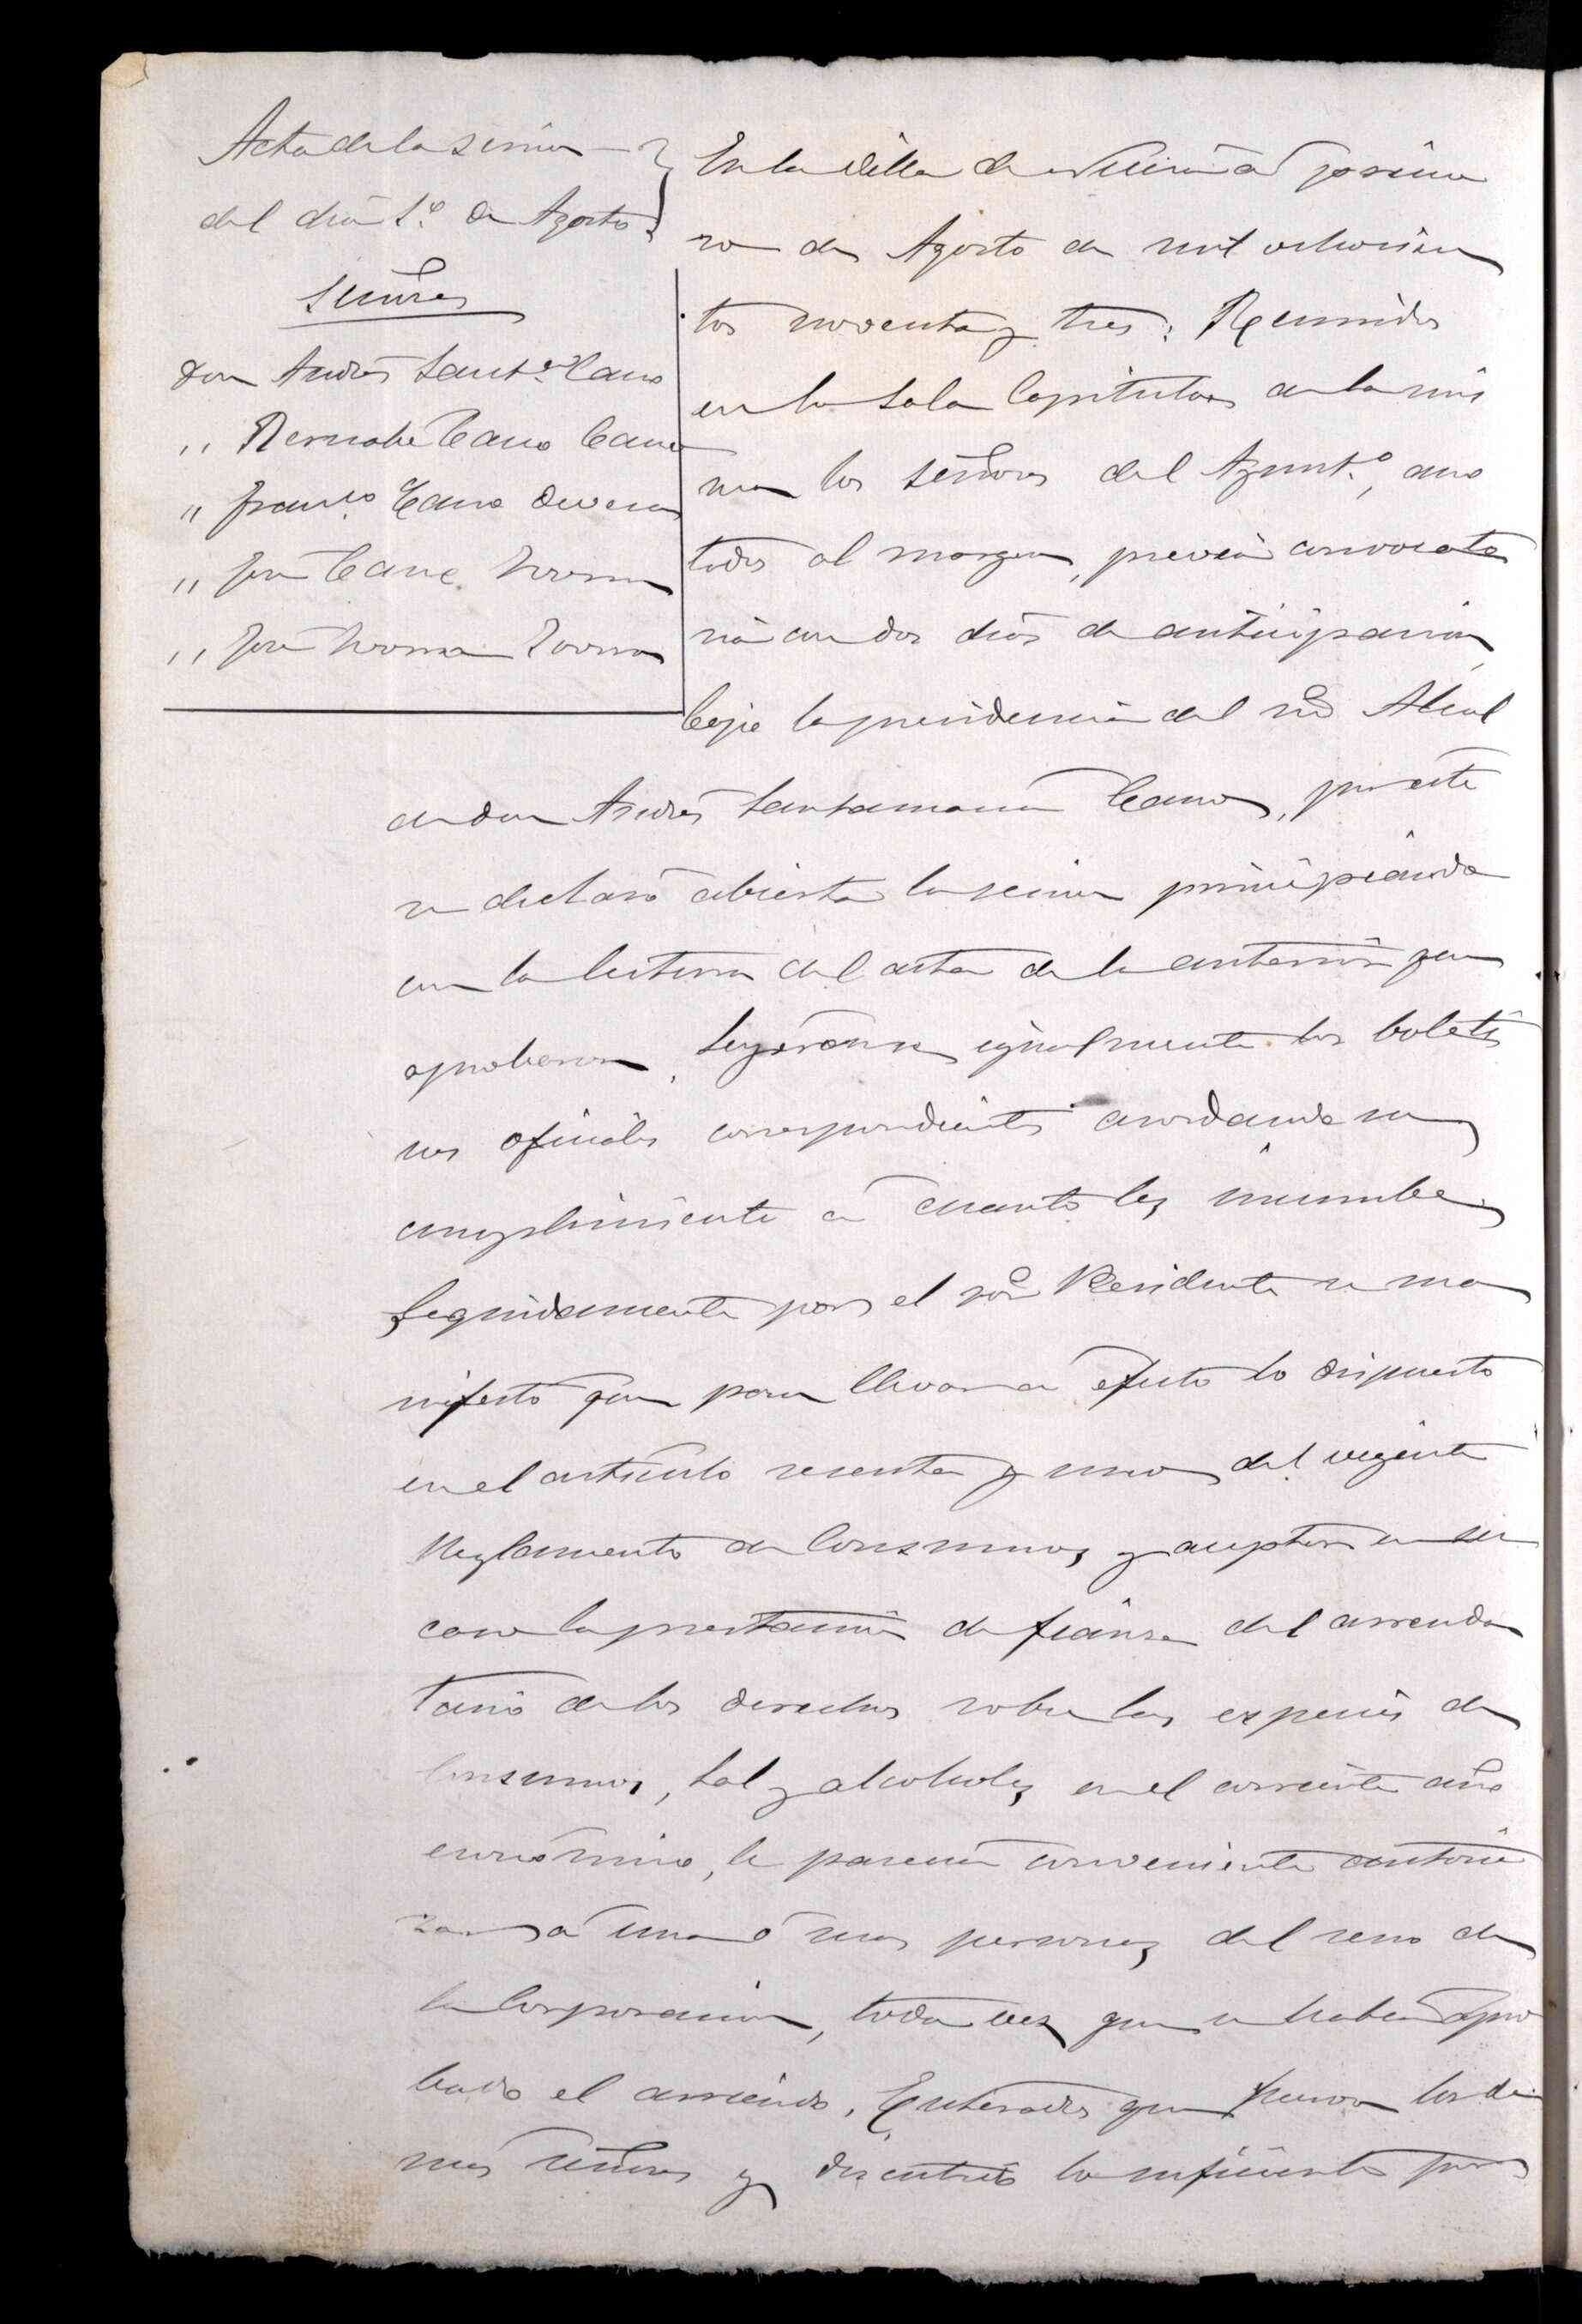 Acta de la sesion
del dia 1.º de Agosto.
Señores
Don Andrés Sant.ª Cano
" Bernabé Cano Cano
" Fran.co Cano Devesa
" José Cano
" José
En la Villa de á prime
ro de Agosto de mil ochocien
tos noventa y tres: Reunidos
en la Sala Capitular de la mis
ma los Señores del Ayunt.º, ano
tados al margen, previa convocato
ria con dos dias de anticipacion,
bajo la presidencia del Sr. Alcal
de don Andrés Santamaria Cano, por este
se declaró abierta la sesion principiando
con la lectura del acta de la anterior que
aprobaron. Leyeronse igualmente los boleti
nes oficiales correspondientes acordando su
cumplimiento á cuanto les incumbe.
Seguidamente por el Sr. Presidente se ma
nifestó que para llevar á efecto lo dispuesto
en el articulo sesenta y uno del vigente
Reglamento de Consumos, y aceptar en su
caso la prestacion de fianza del arrenda
tario de los derechos sobre las especies de
Consumos, Sal y alcoholes en el corriente año
económico, le parecia conveniente autori
zar á uno ó mas personas del seno de
la Corporacion, toda vez que se habia apro
bado el arriendo. Enterados que fueron los de
mas Señores y discutido lo suficiente por